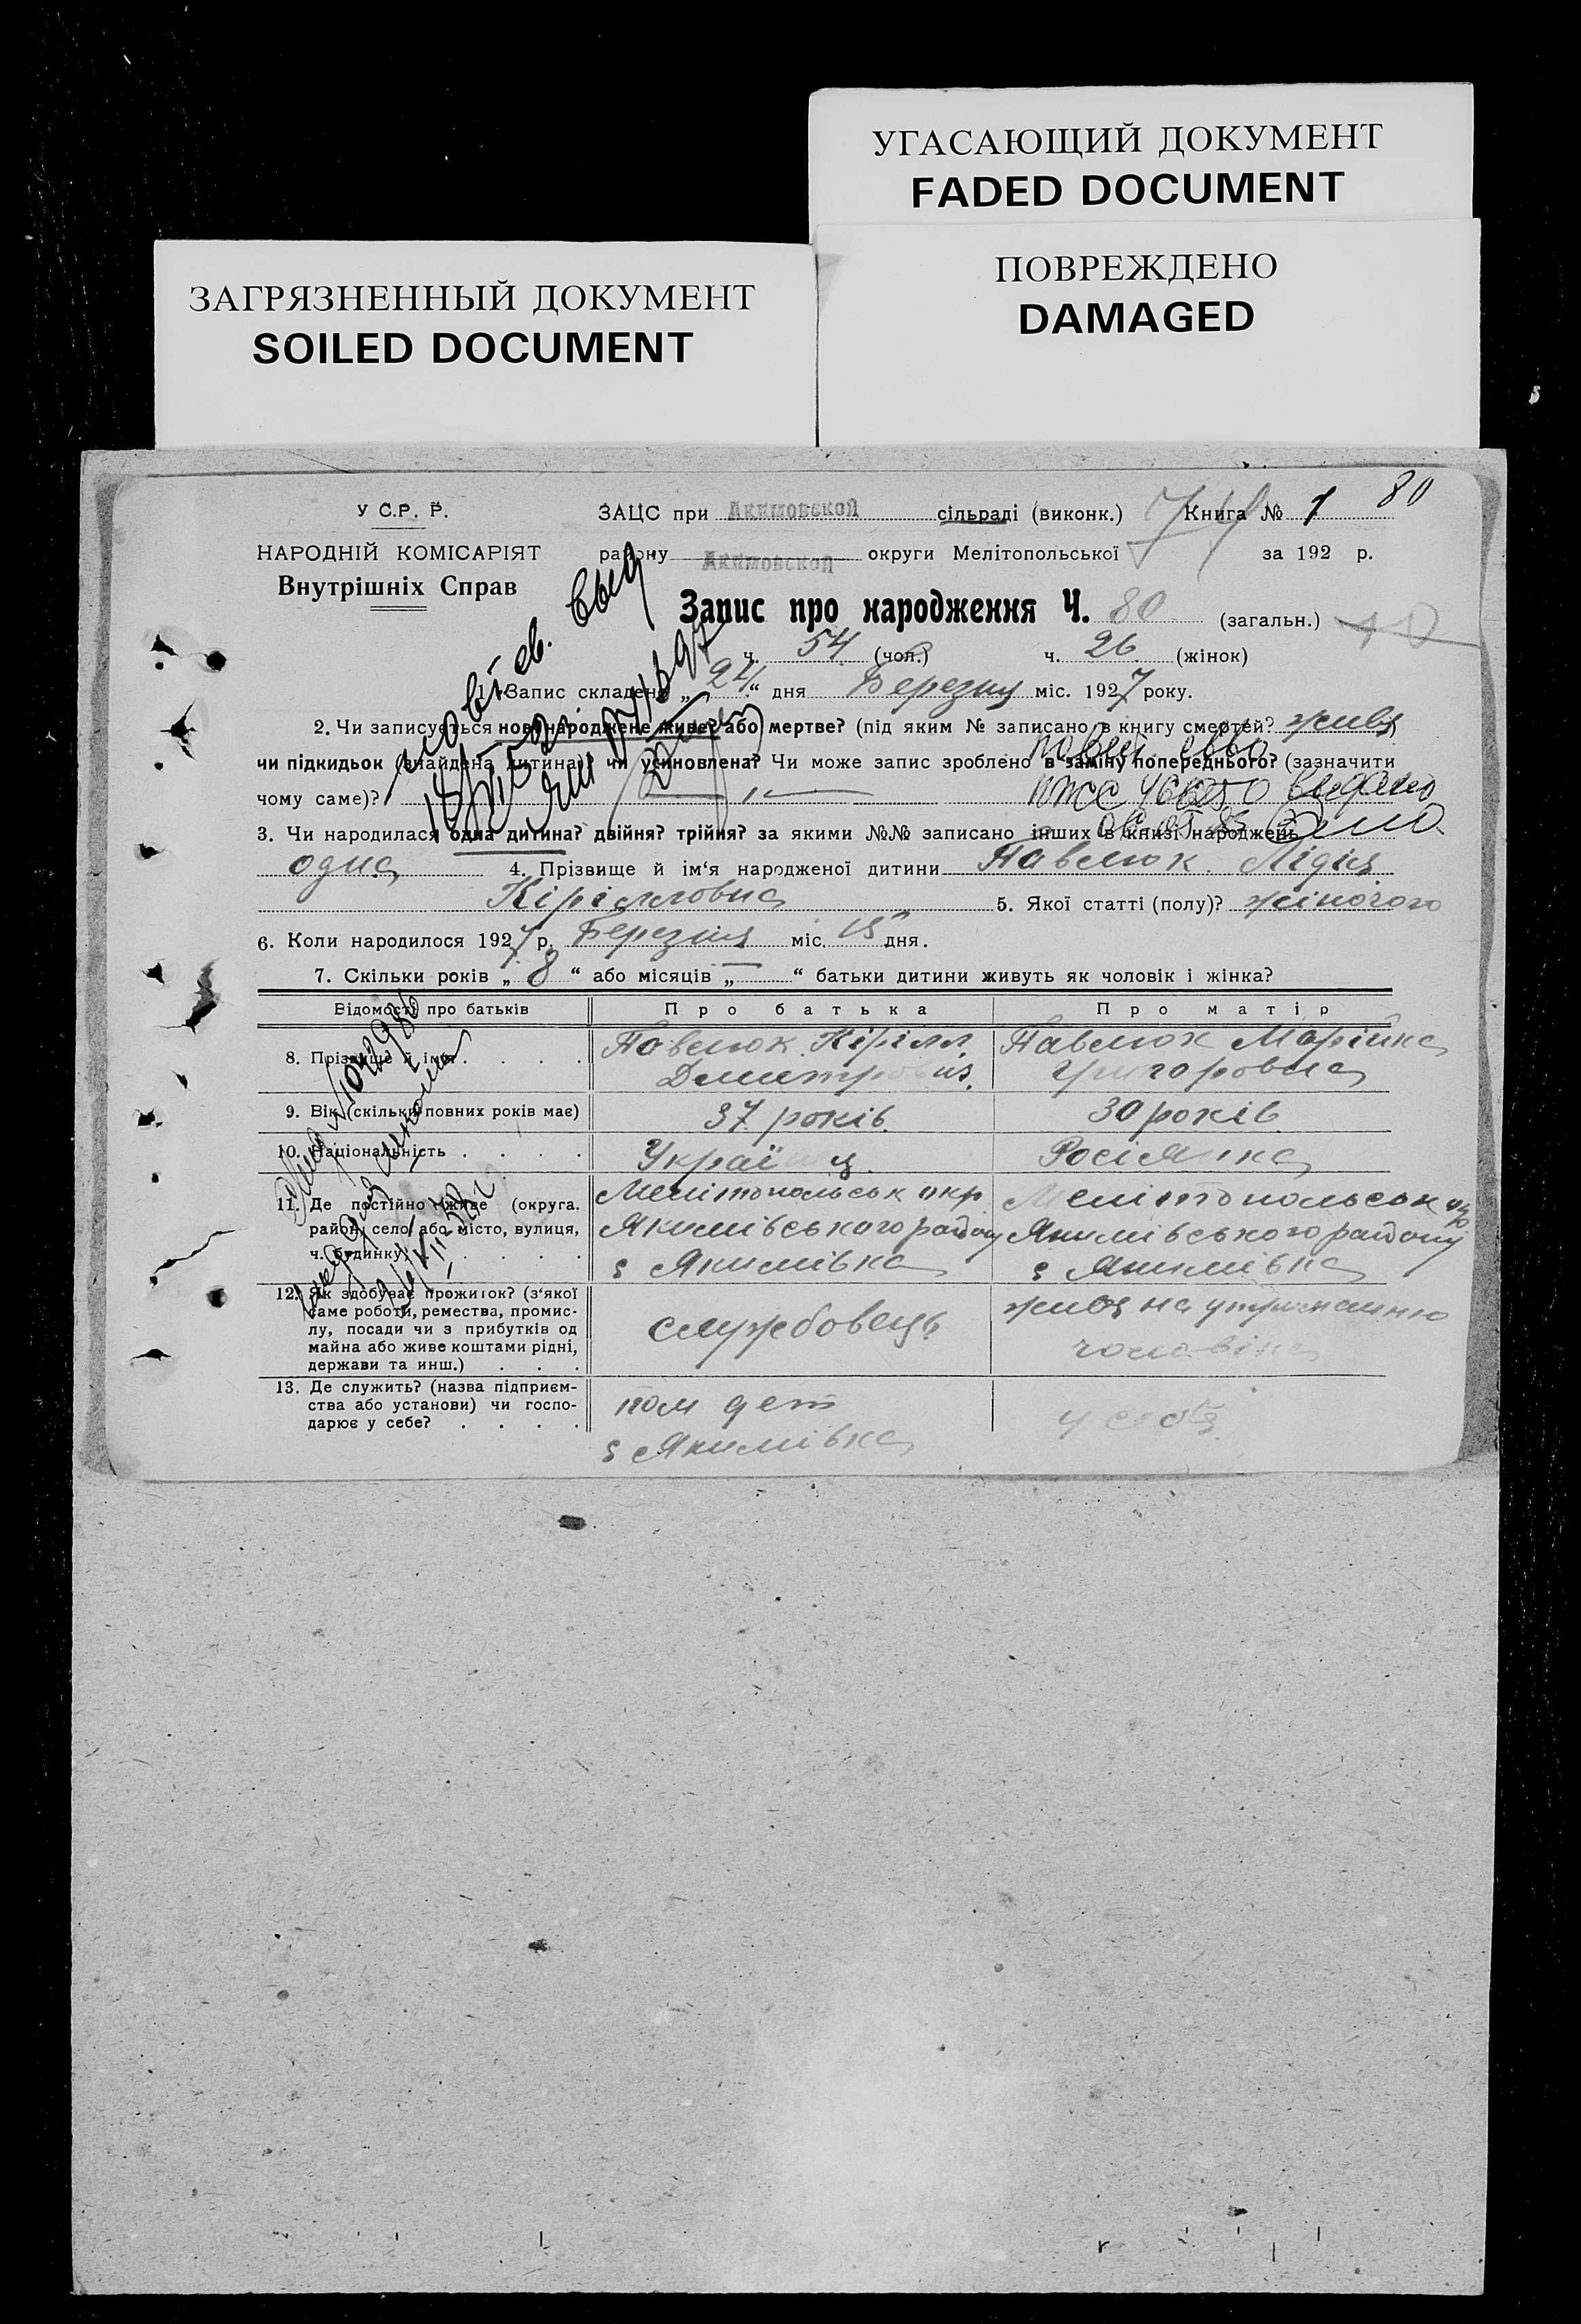 УГАСАЮЩИЙ ДОКУМЕНТ
FADED DOCUMENT
ЗАГРЯЗНЕННЫЙ ДОКУМЕНТ
SOILED DOCUMENT
ПОВРЕЖДЕНО
DAMAGED
80
У С.Р. Р.
ЗАЦС при Акимовской сільраді (виконк.) Книга № 1
НАРОДНІЙ КОМІСАРІЯТ
району Акимовской округи Мелітопольської за 192 р.
Внутрішніх Справ
Запис про народження Ч. 80 (загальн.) 10
ч. 54 (чол.) ч. 26 (жінок)
1. Запис складено „ 24 “ дня Березня міс. 1927 року.
2. Чи записується новонароджене живе? або мертве? (під яким № записано в книгу смертей? жива)
чи підкидьок (знайдена дитина) чи усиновлена? Чи може запис зроблено в заміну попереднього? (зазначити
чому саме)?
3. Чи народилася одна дитина? двійня? трійня? за якими №№ записано інших в книзі народжень
одна 4. Прізвище й ім‘я народженої дитини Павелюк Лідія
Кірілловна 5. Якої статті (полу)? жіночого
6. Коли народилося 1927 р. Березня міс. 15 дня.
7. Скільки років „ 8 “ або місяців „ — “ батьки дитини живуть як чоловік і жінка?
Відомості про батьків Про батька Про матір
8. Прізвище й імя . . . . Павелюк Кірілл Павелюк Марійка
Григоровна
9. Вік (скільки повних років має) 37 років 30 років
10. Національність . . . . Росіянка
11. Де постійно живе (округа, Мелітопольськ окр Мелітопольськ
район, село або місто, вулиця, Якимівського району Якимівського району
ч. будинку) . . . . с Якимівка с Якимівка
12. Як здобуває прожиток? (з‘якої
саме роботи, ремества, промис- живе на утриманню
лу, посади чи з прибутків од службовець
майна або живе коштами рідні, чоловіка
держави та инш.) . . .
13. Де служить? (назва підприєм-
ства або установи) чи госпо- пом дет
дарює у себе? . . . .
с Якимівка